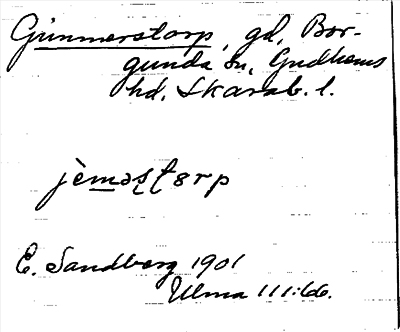 Gunnerstorp, gd, Bor-
gunda sn, Gudhems
hd, Skarab. l.
jèməʂʈɵrp
E. Sandberg 1901
Ulma 111:66.